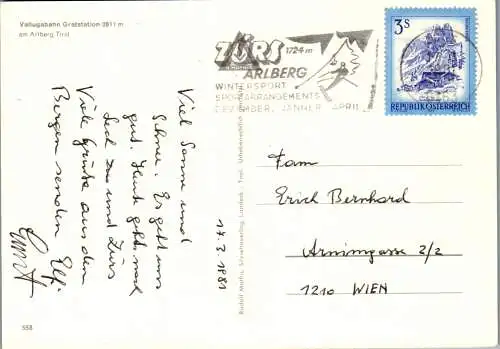 Vallugabahn Gratstation 2811 m
am Arlberg Tirol
Viel Sonne und
Schnee. Es geht uns
gut. Heute geht's nach
Lech zu und Zürs
Viele Grüße aus den
Bergen senden Elfi
17.3.1981
558
Rudolf Mathis, Landeck - Tirol.
ZÜRS
1724 m
ARLBERG
WINTERSPORT
SPORTARRANGEMENTS
DEZEMBER, JÄNNER, APRIL
3S
REPUBLIK ÖSTERREICH
Fam
Erich Bernhard
Arnimgasse 2/2
1210 WIEN